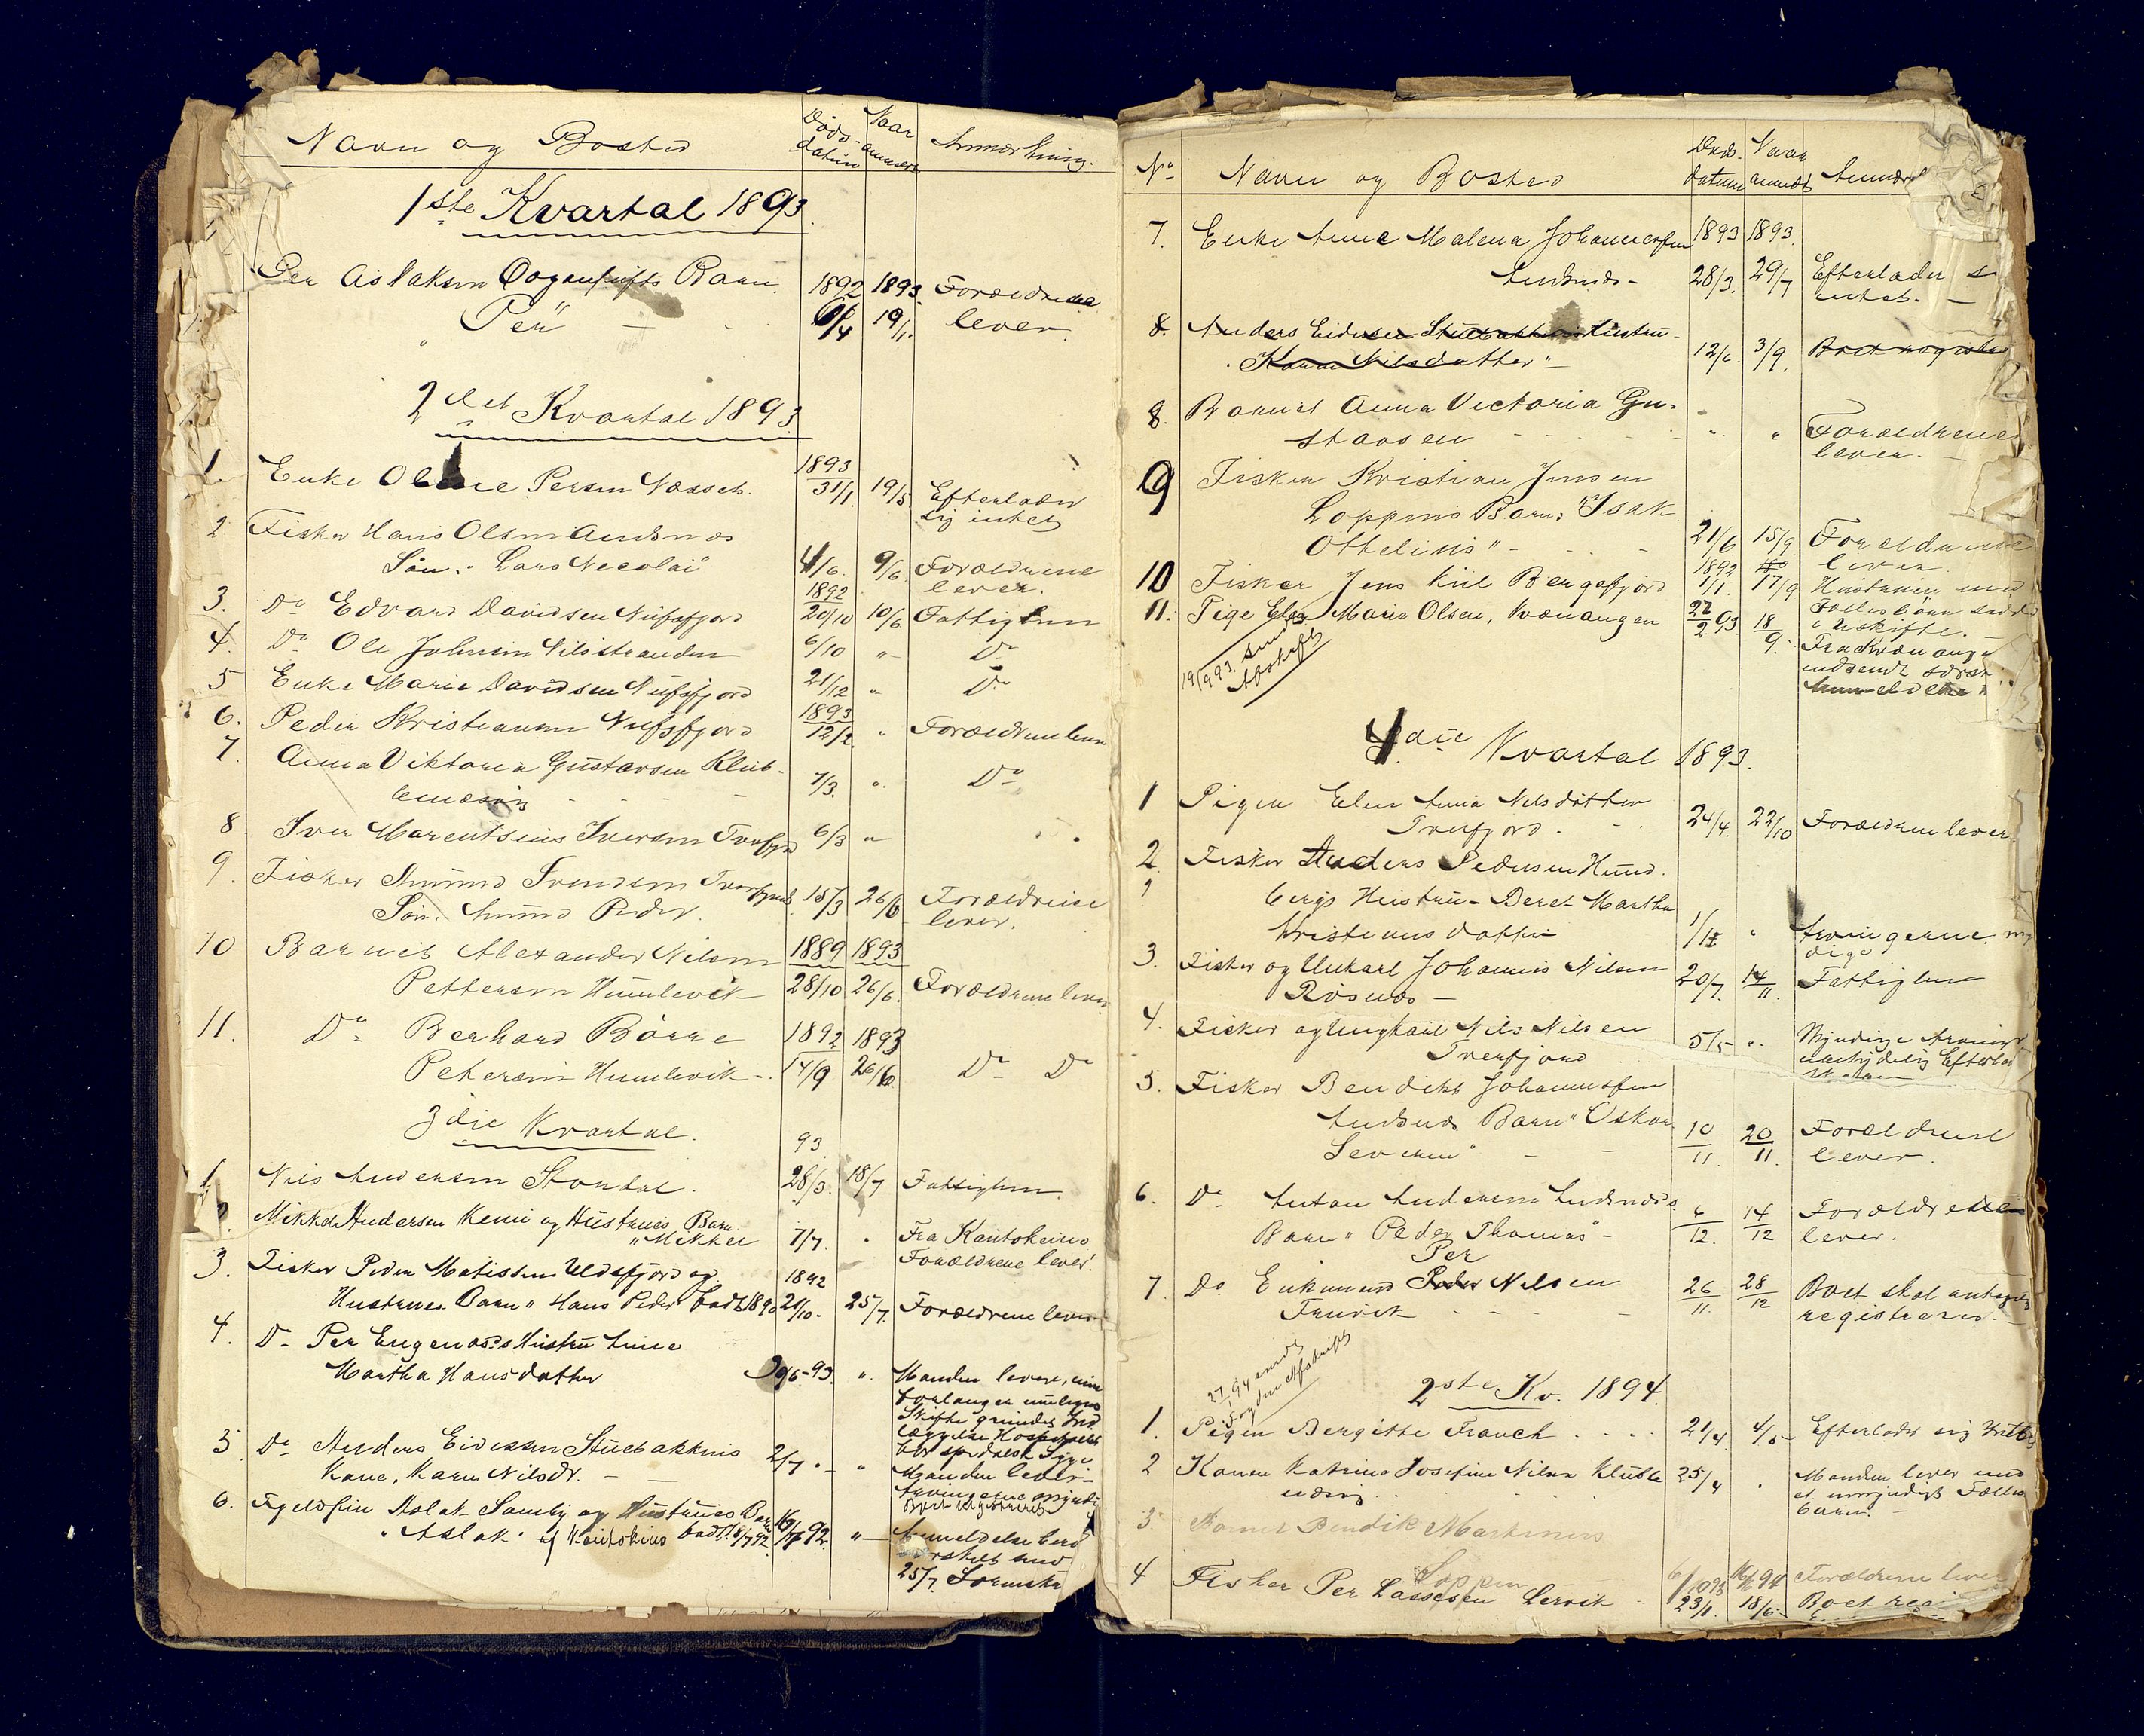 Navn og Bosted Døds- datum Naar anmeldt Anmærkning.
1ste Kvartal 1893.
Per Aslaksen Barn 1892 1893. Forældrene
"Per" 6/4 19/1. lever.
2det Kvartal 1893
1. Enke Persen Næsseb. 1893 31/1. 19/5 Efterlader
sig intet
2 Fisker Hans Olsen Andsnæs
Søn: Lars Necolai 4/6. 9/6. Forældrene
lever.
3. Do Edvard Davidsen Nufsfjord 1892 20/10 10/6 Fattiglem
4. Do Ole Johnsen Nilsstranden 6/10 " Do
5 Enke Marie Davidsen Nufsfjord 21/12 " Do
6. Peder Kristiansen Nufsfjord 1893 12/2 " Forældrene lever
7. Anna Viktoria Gustavsen Klub-
7/3. " Do
8 Iver Marentsius Iversen Tverfjd 6/3 "
9. Fisker Amund Svendsen Tverfjord 15/3 26/6 Forældrene
Søn: Amund Peder. lever.
10 Barnet Alexander Nilsen 1889 1893
Pettersen Humlevik 28/10 26/6. Forældrene lever
11. Do Berhard Børre 1892 1893
Petersen Humlevik 14/9 26/6. Do Do
3die Kvartal. 93
1. Nils Andersen Stordal. 28/3. 18/7 Fattiglem.
2. Mikkel Andersen Kemi og Hustrues Barn
"Mikkel 7/7. " Fra Kautokeino
Forældrene lever!
3. Fisker Peder Matissen Uldsfjord og 1892
Hustrues Barn "Hans Peder" født 1890 21/10. 25/7. Forældrene lever
4. Do Per Hustru Anne
Martha Hansdatter 30/6-93. " Manden lever, men
forlanger
Skifte grundet Ind
læggelse Hospitalet
for spedalsk Syge.
5 Do Anders Eidissen Stuebakkens 2/7 "
Kone, Karen Nilsdr. Manden lever
Arvingerne myndi
Boet registreret
6. Fjeldfin Aslak Samby og Hustrues Barn 16/7 92. "
"Aslak" af Kautokeino født 18/7 92. Anmeldelse
særskilt send.
25/7.
No Navn og Bosted Døds- datum Naar anmeldt
7. Enke Anne Malena Johannessen 1893 1893.
Andsnæs - 28/3. 29/7 Efterlader s
intet. -
8. Anders Eidesen Stuebakken Hustru
"Karen Nilsdatter" 12/6. 3/9. Boet
8. Barnet Anna Victoria Gu-
stavsen " " Forældrene
lever. -
9 Fisker Kristian Jensen
Loppens Barn: "Isak
Othelius" - 21/6 15/9. Forældrene
lever
10 Fisker Jens Kiil Bergsfjord 1892 1/1. 17/9 Hustruen med
Fællesbørn sidder
i Uskifte. -
11. Pige Elen Marie Olsen, Kvænangen 27/2 93 18/9. Fra Kvænange
indsendt særsk.
19/9 93. send
Afskrift
4de Kvartal 1893.
1 Pigen Elen Anna Nilsdatter
Tverfjord. 24/4. 22/10 Forældrene lever
2. Fisker Anders Pedersen Hund.
bergs Hustru - Beret Martha
Kristiansdatter " Arvingerne my
dige
3. Fisker og Johannes Nilsen 20/7. 14/11. Fattiglem
Røsnæs -
4. Fisker og Ungkarl Nils Nilsen 5/5 " Myndige Arvinger
Tverfjord
5. Fisker Bendikt Johannessen
Andsnes Barn "Oskar 10/11. 20/11. Forældrene
Severin" lever.
6. Do Anton Andersen Andsnæs's 6/12. 14/12 Forældrene
Barn "Peder Thomas" - lever.
Per
7. Do Enkemand Peder Nilsen 26/11. 28/12 Boet skal
registreres. -
27/1 94 sendt
Fogden Afskrift
2ste Kv. 1894.
1. Pigen Bergitte Franck . . . . 21/4. 4/5 Efterlader sig Intet
2 Konen Katrina Josefine Nilsen Klubbe 25/4 " Manden lever med
næs et umyndigt Fælles
barn. -
3 Barnet Bendik Martinus
Loppen 6/10 93 94 Forældrene lever
4 Fisker Per Lassesen Lervik 23/1. 18/6. Boet reg